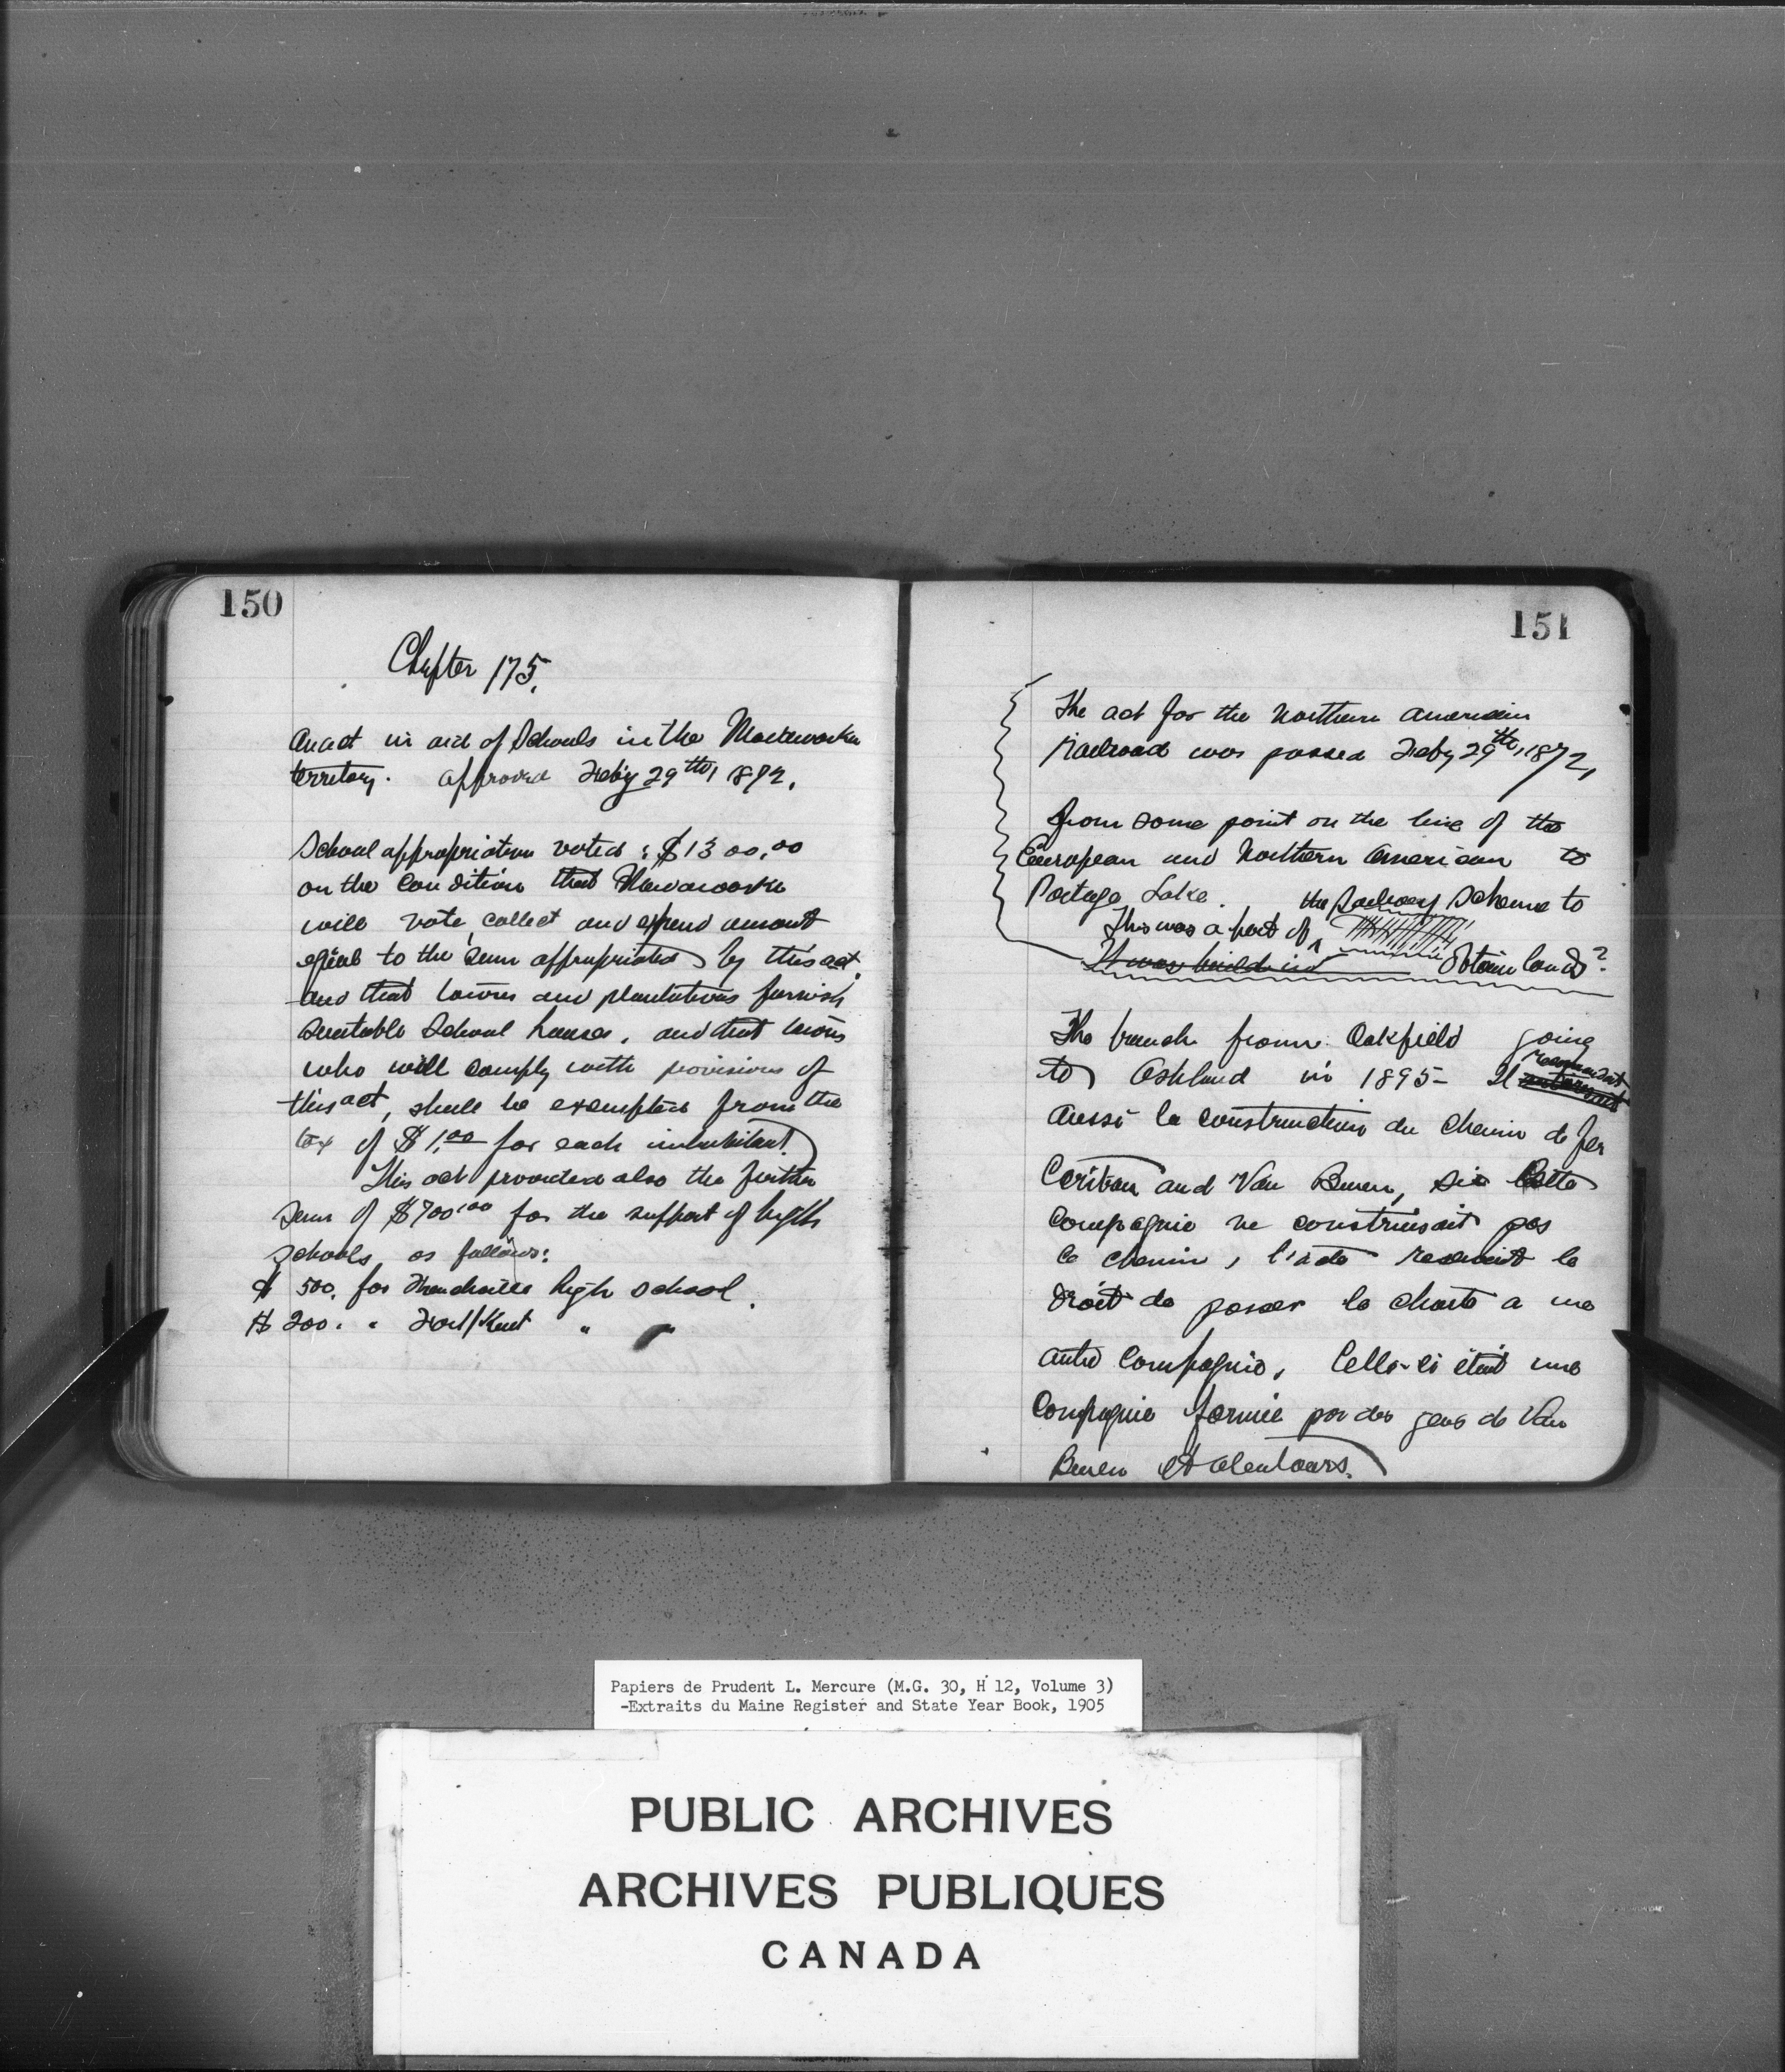 150
Chapter 175.
An act in aid of Schools in the Madawaska
territory. approved Feby 29th, 1872.
School appropriation voted : $1300.00
on the condition that Madawaska
will vote, collect and expend amount
equal to the sum appropriated by this act.
and that towns and plantations furnish
suitable School houses. and that towns
who will comply with provisions of
this act, shall be exempted from the
tax of $1.00 for each inhabitant.
This act provided also the further
sum of $700.00 for the support of high
schools as follows:
$ 500. for Frenchville high school.
$ 200. " Fort/Kent " "
151
The act for the Northern American
Railroad was passed Feby 29th, 1872,
from some point on the line of the
European and Northern American to
Portage Lake. the Railway Scheme to
This was a part of
It was build in obtain lands?
The branch from Oakfield going
to Ashland in 1895- Il
aussi la construction du chemin de fer
Caribou and Van Buren, si cette
Compagnie ne construisait pas
le chemin, l'acte reservait le
droit de passer la charte a une
autre Compagnie. Celle-ci était une
Compagnie formée par des gens de Van
Buren et alentours.
Papiers de Prudent L. Mercure (M.G. 30, H 12, Volume 3)
-Extraits du Maine Register and State Year Book, 1905
PUBLIC ARCHIVES
ARCHIVES PUBLIQUES
CANADA